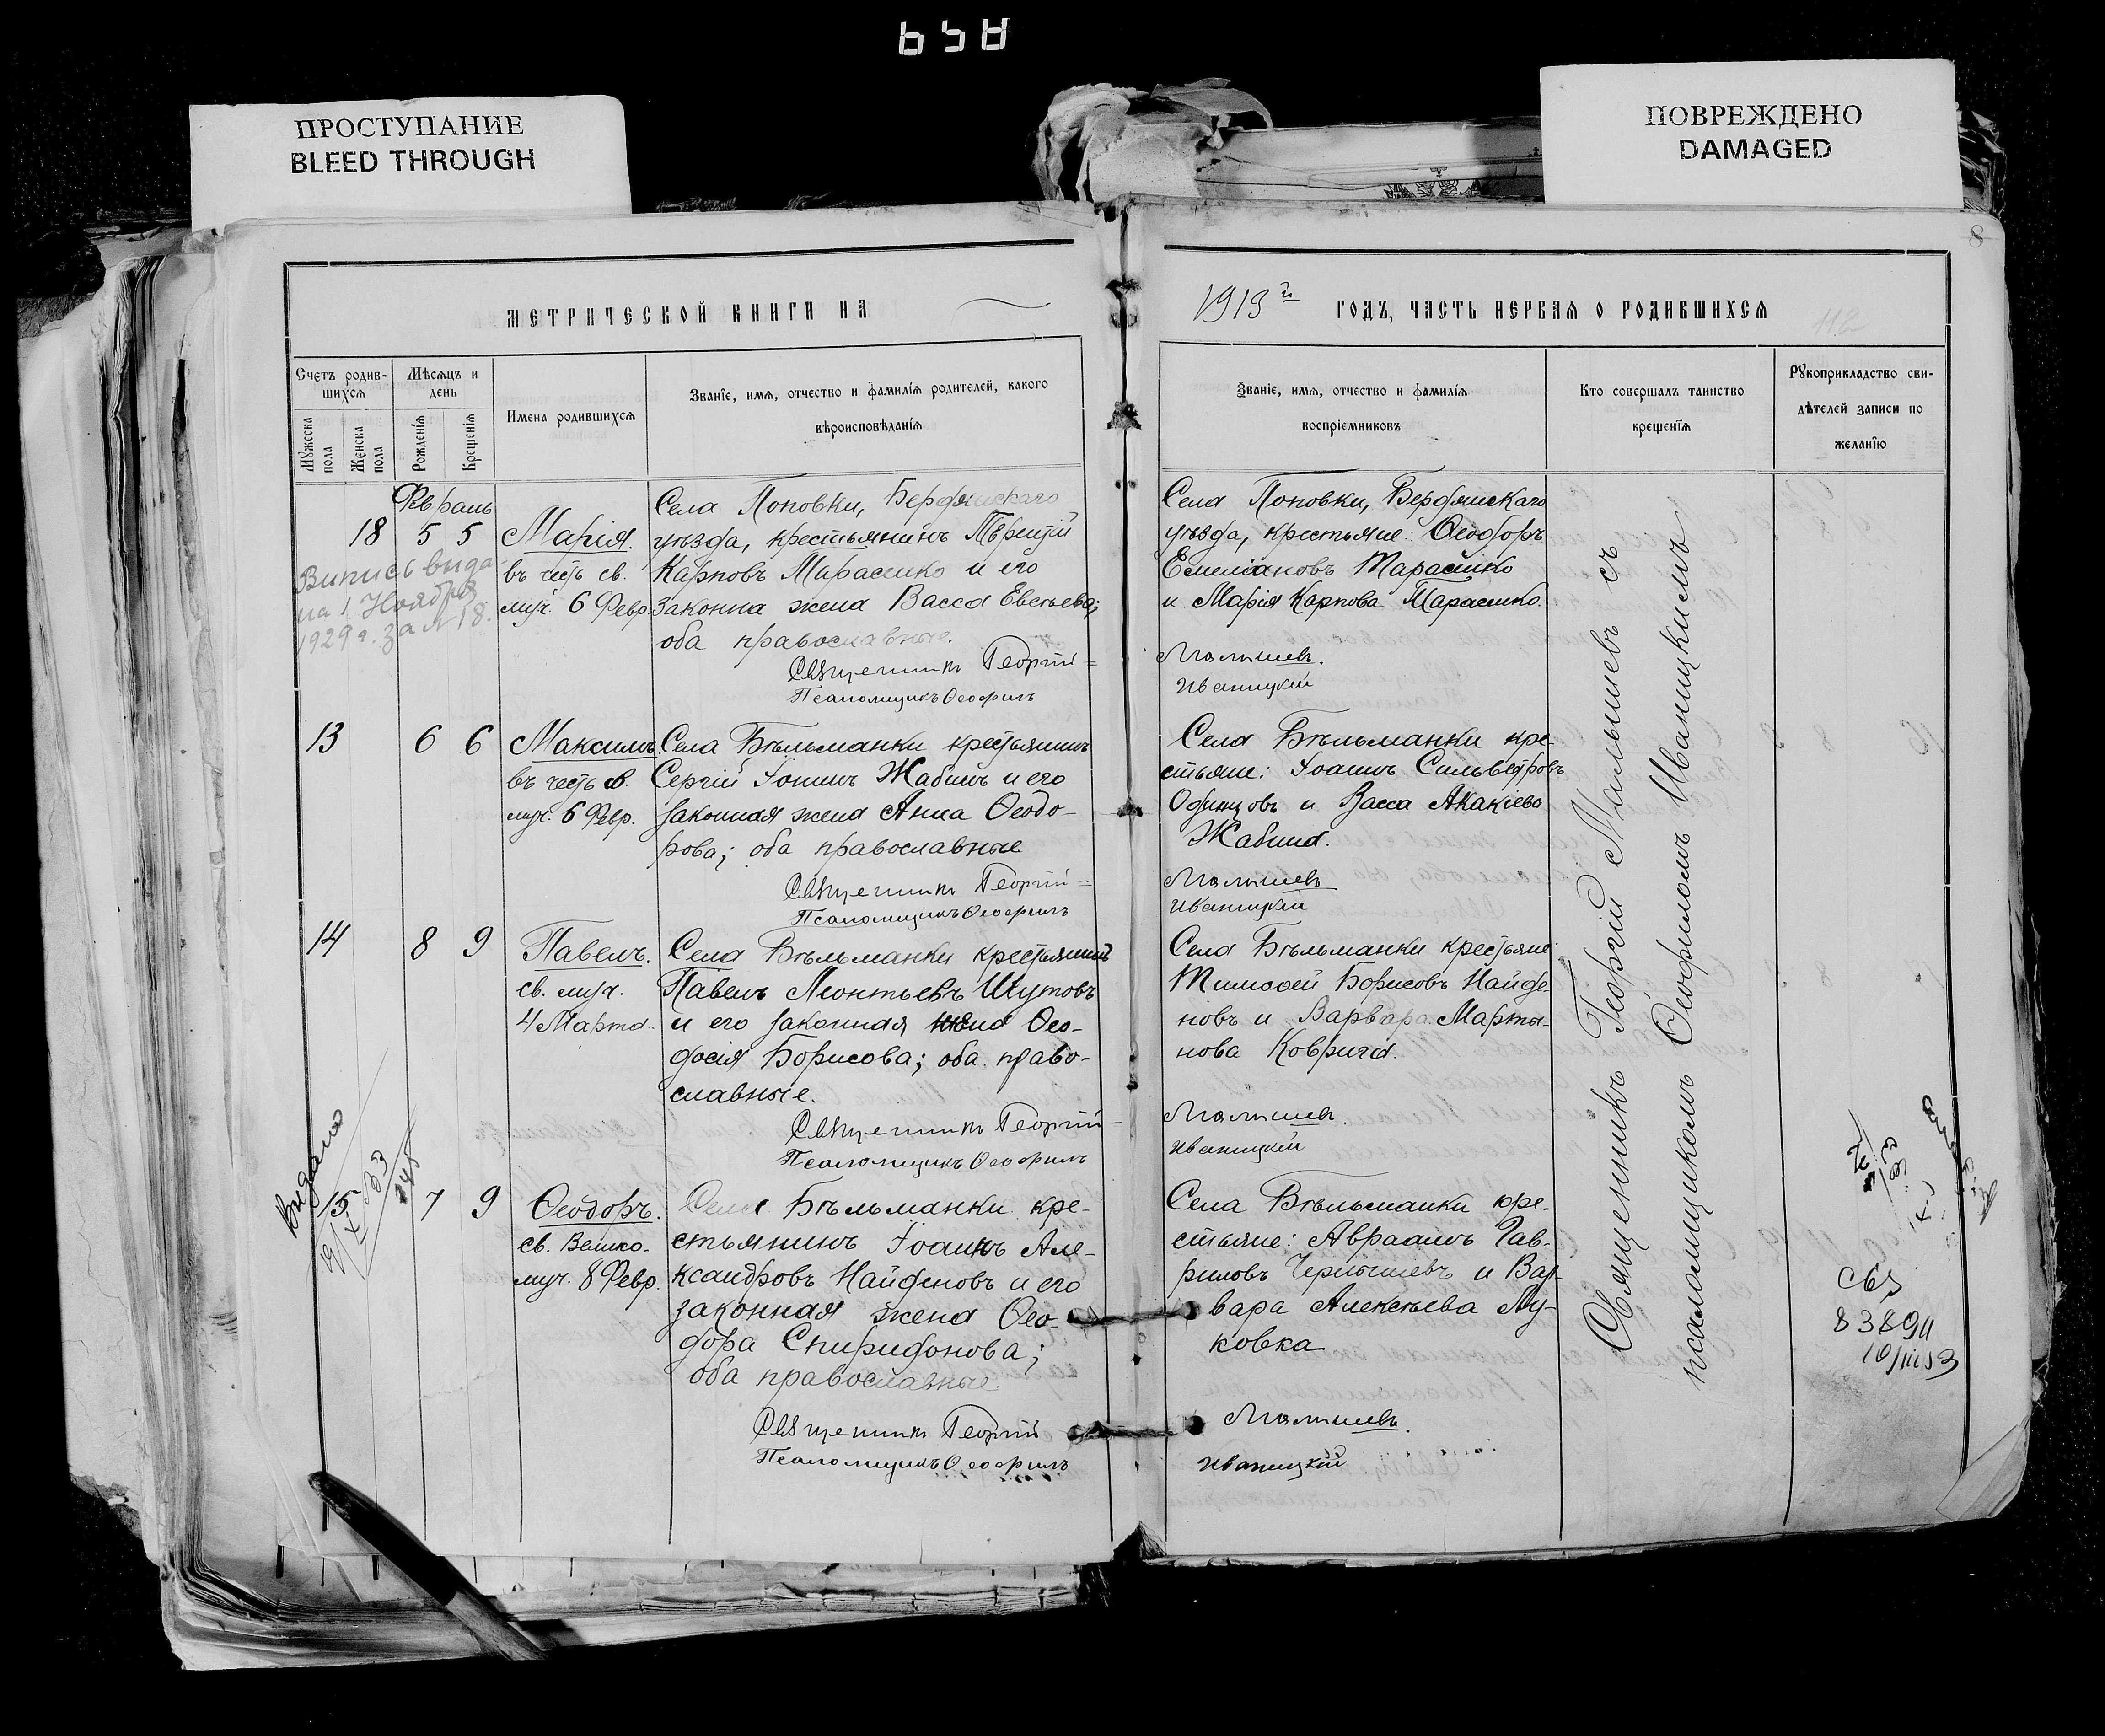 859
ПРОСТУПАНИЕ
BLEED THROUGH
ПОВРЕЖДЕНО
DAMAGED
8
МЕТРИЧЕСКОЙ КНИГИ НА
1913й ГОДЪ, ЧАСТЬ ПЕРВАЯ О РОДИВШИХСЯ
112
Счетъ родив-
шихся
Мужеска пола
Женска пола
Мѣсяцъ и
день
Рожденія
Крещенія
Имена родившихся
Званіе, имя, отчество и фамилія родителей, какого
вѣроисповѣданія
Званіе, имя, отчество и фамилія
воспріемниковъ
Кто совершалъ таинство
крещенія
Рукоприкладство сви-
дѣтелей записи по
желанію
Февраль
18 5 5
Випись вида
на 1 Ноября
1929 г. за № 18.
Марія.
въ честь св.
муч. 6 Февр.
Села Поповки, Бердянскаго
уѣзда, крестьянинъ Терентій
Карповъ Тарасенко и его
законна жена Васса Евсеева;
оба православные.
Священникъ Георгій=
Псаломщикъ Ѳеофилъ
Села Поповки, Бердянскаго
уѣзда, крестьяне: Ѳеодоръ
Емеліановъ Тарасенко
и Марія Карпова Тарасенко.
Малышевъ.
Иваницкій
13 6 6
Максимъ.
въ честь св.
муч. 6 Февр.
Села Бѣльманки крестьянинъ
Сергій Іонинъ Жабинъ и его
законная жена Анна Ѳеодо-
рова; оба православные
Священникъ Георгій=
Псаломщикъ Ѳеофилъ
Села Бѣльманки кре-
стьяне: Іоаннъ Сильвестровъ
Одинцовъ и Васса Акакіева
Жабина.
Малышевъ
Иваницкій
14 8 9
Павелъ.
св. муч.
4 Марта.
Села Бѣльманки крестьянинъ
Павелъ Леонтьевъ Шутовъ
и его законная жена Ѳео-
досія Борисова; оба право-
славные.
Священникъ Георгій
Псаломщикъ Ѳеофилъ
Села Бѣльманки крестьяне:
Тимоѳей Борисовъ Найде-
новъ и Варвара Марты-
нова Коврига.
Малышевъ.
Иваницкій
Видано
15 7 9
Ѳеодоръ.
св. Велико-
муч. 8 Февр.
Села Бѣльманки кре-
стьянинъ Іоаннъ Але-
ксандровъ Найденовъ и его
законная жена Ѳео-
дора Спиридонова;
оба православные.
Священникъ Георгій
Псаломщикъ Ѳеофилъ
Села Бѣльманки кре-
стьяне: Авраамъ Гав-
риловъ Чернышевъ и Вар-
вара Алексѣева Лу-
ковка
Малышевъ.
Иваницкій
Священникъ Георгій Малышевъ съ
псаломщикомъ Ѳеофиломъ Иваницкимъ